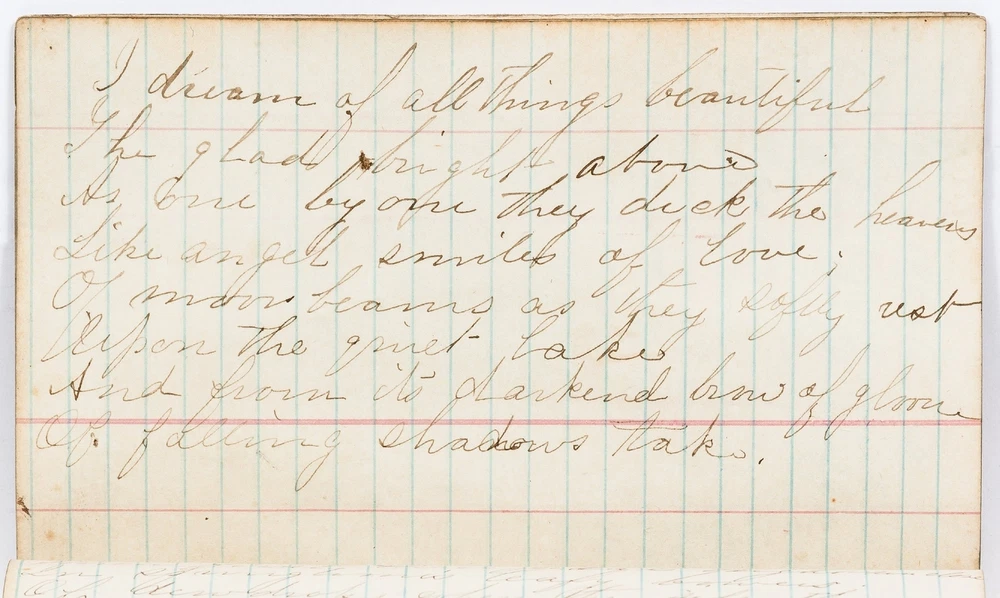 I dream of all things beautiful
The glad bright above
As one by one they deck the heavens
Like angel smiles of love.
Of moon beams as they softly rest
Upon the quiet lake
And from its darkend brow of gloom
Of falling shadows take.